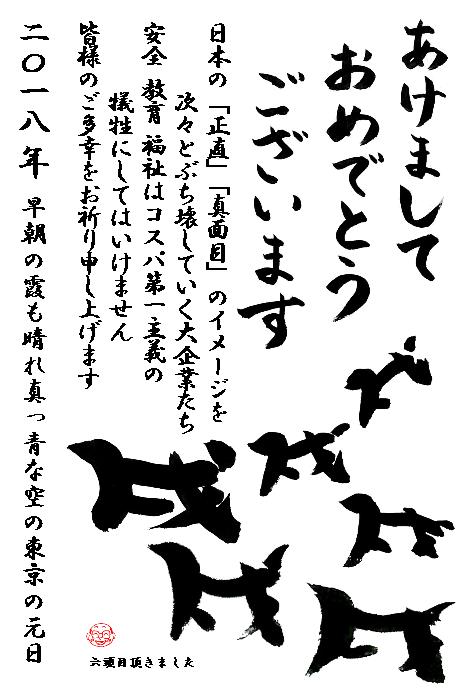 あけまして
おめでとう
ございます
日本の「正直」「真面目」のイメージを
次々とぶち壊していく大企業たち
安全 教育 福祉はコスパ第一主義の
犠牲にしてはいけません
皆様のご多幸をお祈り申し上げます
二〇一八年 早朝の霞も晴れ真っ青な空の東京の元日
六頭目頂きました